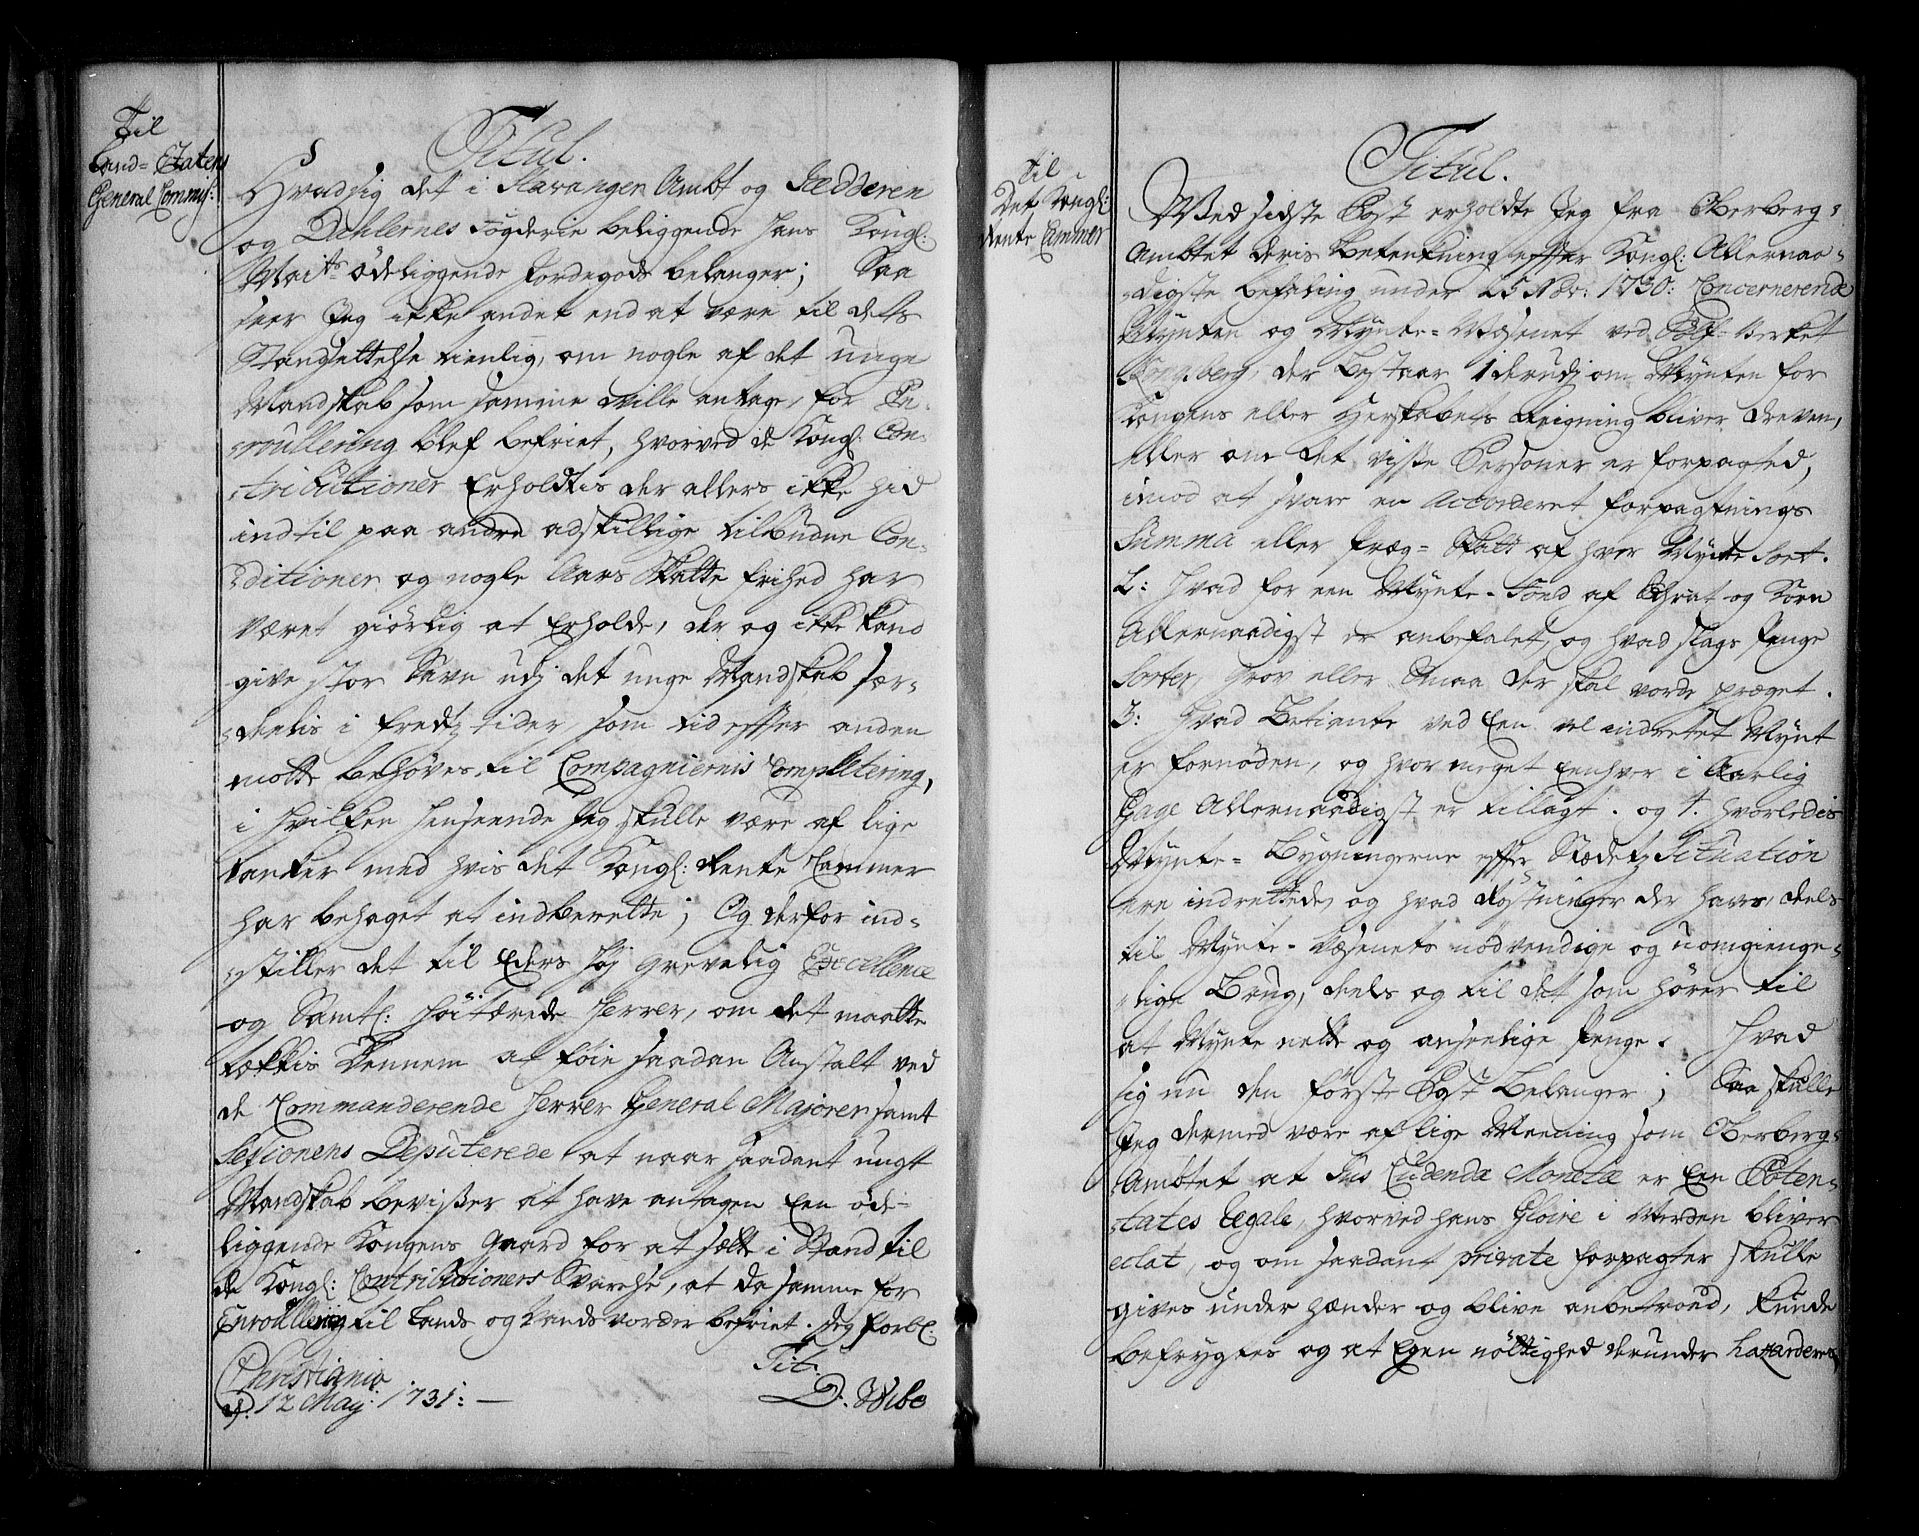 Til
Land-Etatens
General Commiss:
Titul.
Hvad sig det i Stavanger Ambt og Jedderen
og Dahlernes Fogderie beliggende Hans Kongl:
Mai:ts ödeliggende Jordegods belanger; Saa
seer Jeg icke andet end at være til dets
Standsettelse tienlig, om nogle af det unge
Mandskab som samme ville antage, for En-
roullering blef befriet, hvorved de Kongl: Con-
tributioner Erholdtis der allers icke hid
indtil paa andre adskillige tilbudne Con-
ditioner og nogle Aars Skatte frihed har
været giørlig at Erholde, der og icke kand
give stor Savn udj det unge Mandskab sær-
deelis i freds tider, som tid effter anden
motte behøves til Compagniernis Completering,
i hvilken Henseende Jeg skulle være af lige
tanker med hvis det Kongl: Rente Cammer
har behaget at indberette; Og derfor ind-
stiller det til Eders Høj Grevelig Excellence
og Samtl: Höitærede Herrer, om det maatte
tækkis Dennem at føie saadan Anstalt ved
de Commanderende Herrer General Majorer samt
Sessionens Deputerede at naar saadant ungt
Mandskab beviser at have antagen Een öde-
liggende Kongens Gaard for at sætte i Stand til
de Kongl: Contributioners Svarelse, at da samme for
Enroullering til Lands og Vands vorder befriet. Jeg forbl:
Christiania
d. 12 Maij: 1731:
Tit:
D. Wibe
Til
Det Kongl:
Rente Cammer
Titul.
Med sidste Post erholdte Jeg fra Oberberg-
Ambtet deris Betenkning effter Kongl: Allernaa-
digste befaling under 25 Nov: 1730: Concernerende
Mynten og Mynte-Wæsenet ved Sölf-Verket
Kongsberg, der bestaar 1 derudj om Mynten for
Kongens eller Herskabets Reigning bliver dreven,
Eller om det visse Personer er forpagted,
imod at svare en Accorderet forpagtnings
Summa eller præg-Skatt af hver Mynte Sort.
2: Hvad for een Mynte-Fond af Schrat og Korn
Allernaadigst er anbefalet, og hvad slags Penge
Sorter, Grov eller Smaa der skal vorde præget.
3: Hvad Betiente ved Een vel indrettet Mynt
er fornöden, og hvor meget Eenhver i Aarlig
Gage Allernaadigst er tillagt. og 4. hvorledis
Mynte-Bygningerne effter Stædets Situation
ere indrettede, og hvad Rystninger der haves, deels
til Mynte-Væsenets nödvendige og uomgienge-
lige Brug, deels og til det som hörer til
at Mynte nette og anseelige Penge. Hvad
sig nu den förste Post belanger; Saa skulle
Jeg dermed være af lige Meening som Oberberg-
Ambtet at Jus Cudendæ Monetæ er Een Poten-
tates Regale, hvorved hans Gloire i Verden bliver
eclat, og om saadant private forpagter skulle
gives under hænder og blive anbetroed, kunde
befrygtes og at Egen nöttighed derunder hazarderes